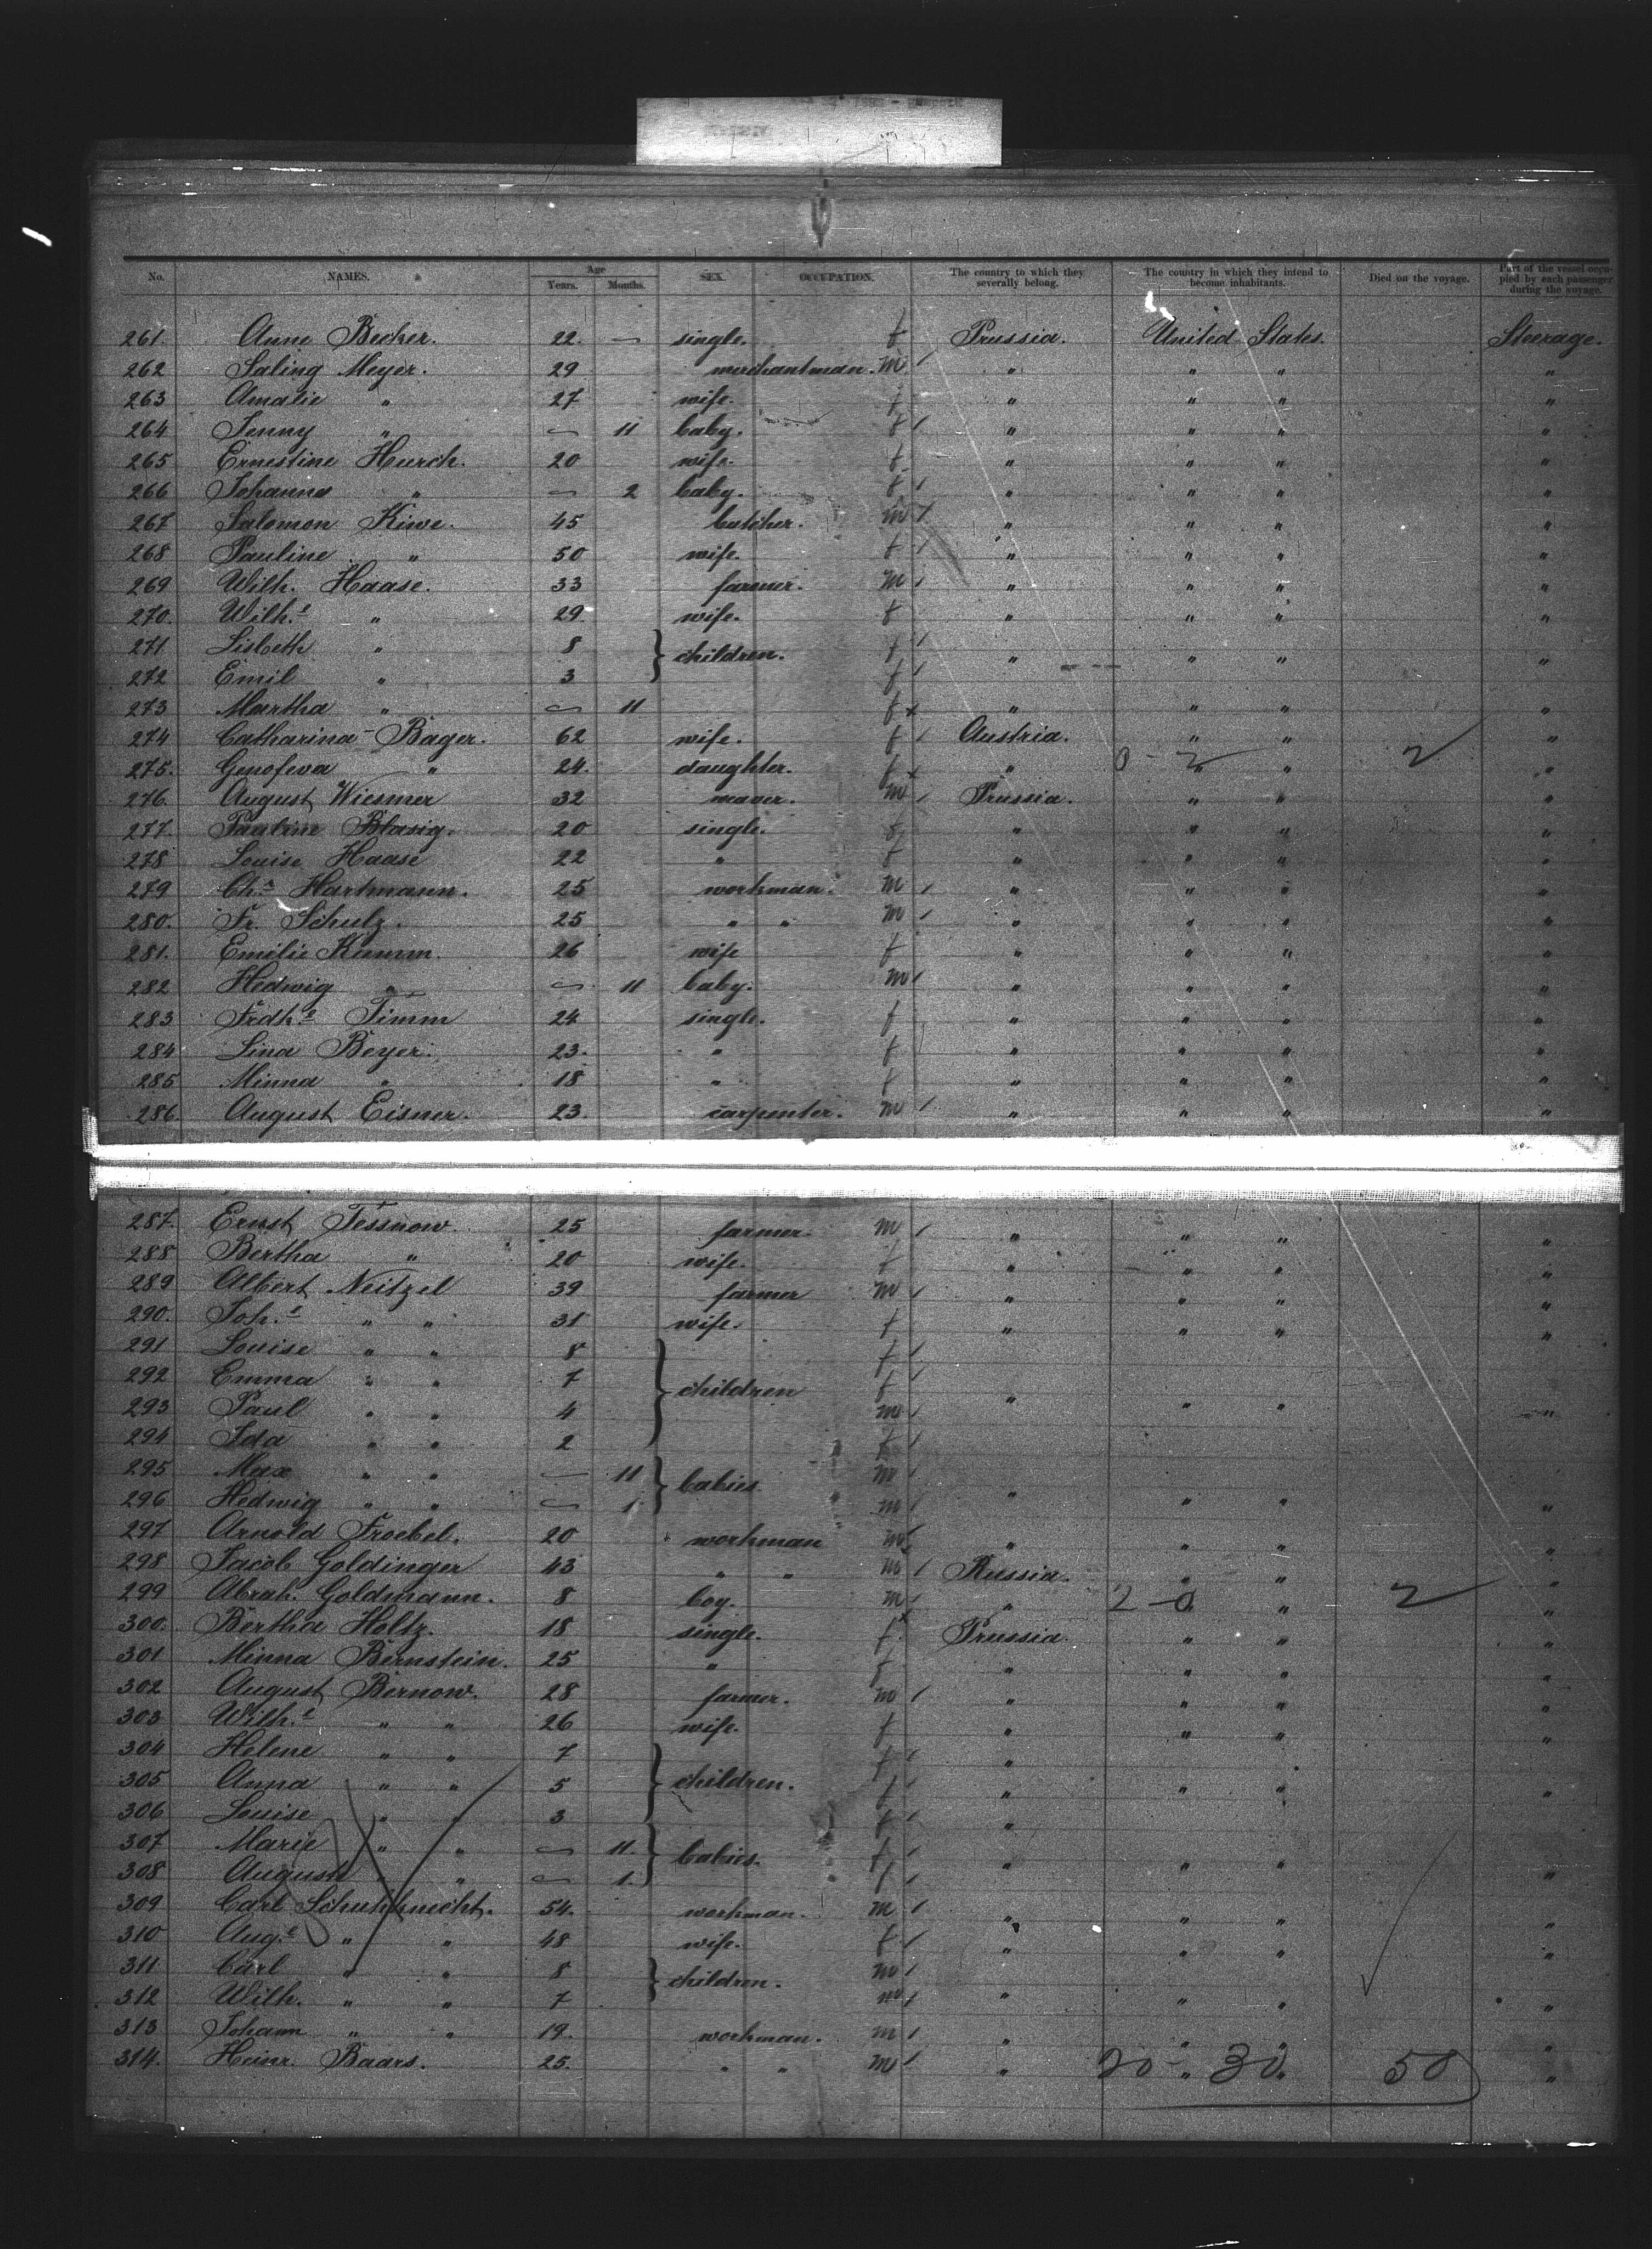 No. NAMES. Age Years. Months. SEX. OCCUPATION. The country to which they severally belong. The country in which they intend to become inhabitants. Died on the voyage. Part of the vessel occupied by each passenger during the voyage.
261. Anne Becker. 22. — single. f Prussia. United States. Steerage.
262 Saling Meyer. 29 merchantman. m / " " " "
263 Amalie " 27 wife. f " " " "
264 Jenny " — 11 baby. f / " " " "
265 Ernestine Hurch. 20 wife. f " " " "
266 Johanna " — 2 baby. f / " " " "
267 Salomon Kiwe. 45 butcher. m / " " " "
268 Pauline " 50 wife. f / " " " "
269 Wilh. Haase. 33 farmer. m / " " " "
270. Wilh.e " 29. wife. f " " " "
271 Lisbeth " 8 } children. f / " " " "
272 Emil " 3 f /
273 Martha " — 11 f x " " " "
274 Catharina Bager. 62 wife. f / Austria. " " "
275. Genofeva " 24. daughter. f x " 0 - 2 " " 2 "
276. August Wiesmer 32 weaver. m / Prussia. " " "
277. Pauline Blasig. 20 single. f " " " "
278 Louise Haase 22 " f " " " "
279 Ch.s Hartmann. 25 workman. m / " " " "
280. Fr. Schulz. 25 " " m / " " " "
281. Emilie Kamm. 26 wife f " " " "
282 Hedwig " — 11 baby. m / " " " "
283 Frdk.e Timm 24 single. f " " " "
284 Lina Beyer. 23. " f " " " "
285 Minna " 18 " f " " " "
286. August Eisner. 23. carpenter. m / " " " "
287. Ernst Tessnow. 25 farmer. m / " " " "
288 Bertha " 20 wife. f " " " "
289 Albert Neitzel 39 farmer m / " " " "
290. Joh.e " " 31 wife. f " " " "
291 Louise " " 8 f /
292 Emma " " 7 } children f / " " " "
293 Paul " " 4 m /
294 Ida " " 2 f /
295 Max " " — 11 } babies. m /
296. Hedwig " " — 1. m / " " " "
297 Arnold Froebel. 20 workman m " " " "
298 Jacob Goldinger 43 " " m / Russia. " " "
299 Abrah. Goldmann. 8 boy. m / " 2 - 0 " " 2 "
300. Bertha Holtz. 18 single. f x Prussia. " " "
301 Minna Bernstein. 25 " f " " " "
302 August Bernow. 28 farmer. m / " " " "
303 Wilh.e " " 26 wife. f " " " "
304 Helene " " 7 f / "
305 Anna " " 5 } children. f / " " " "
306 Louise " " 3 f / "
307 Marie " " — 11. } babies. f / " " " "
308 August " " — 1. f /
309 Carl Schuhknecht. 54. workman. m / " " " "
310 Aug.e " " 48 wife. f / " " " "
311 Carl " " 8 } children. m /
312 Wilh. " " 7 m / " " " "
313 Johann " " 19. workman. m / " " " "
314. Heinr. Baars. 25. " " m / " 20 - 30 50 "